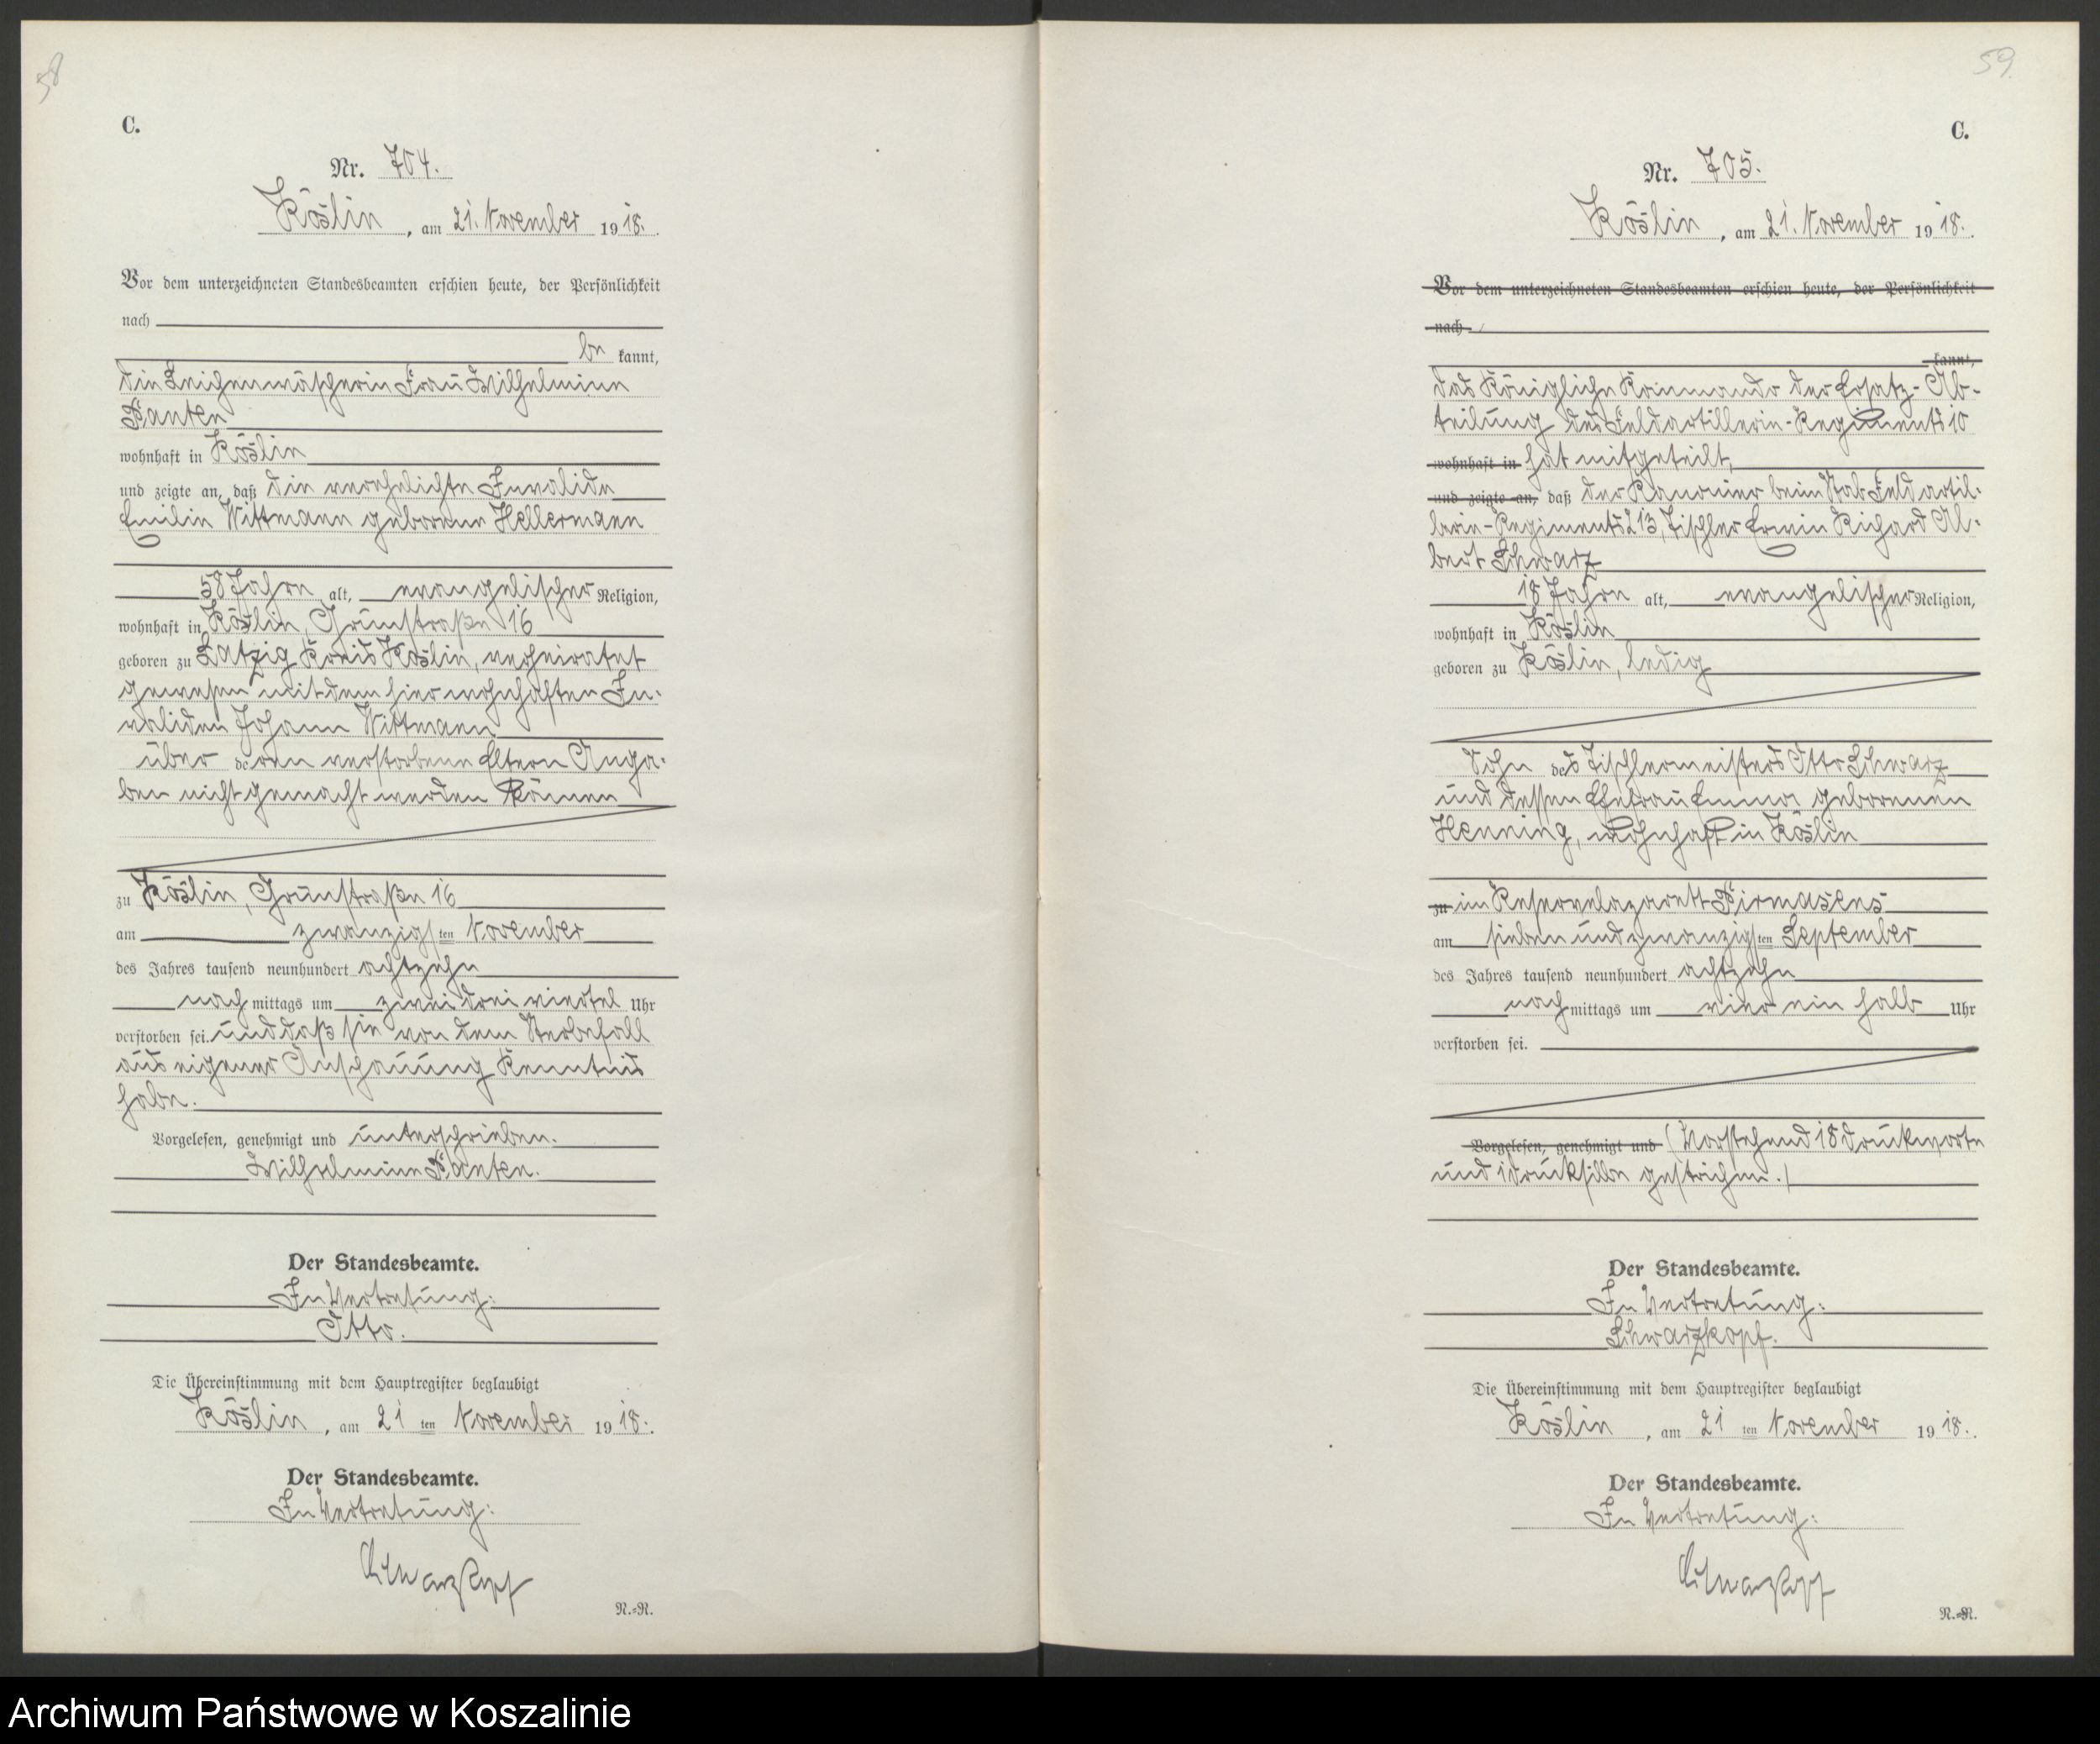 58
C.
Nr. 704.
Köslin, am 21. November 1918.
Vor dem unterzeichneten Standesbeamten erschien heute, der Persönlichkeit
nach
be kannt,
die Leichenwäscherin Frau Wilhelmine
Panten
wohnhaft in Köslin
und zeigte an, daß die verehelichte Invalide
Emilie Wittmann geborene Hellermann
58 Jahre alt, evangelischer Religion,
wohnhaft in Köslin, Grünstraße 16
geboren zu Latzig Kreis Köslin, verheiratet
gewesen mit dem hier wohnhaften In-
validen Johann Wittmann
über deren verstorbene Eltern Anga-
ben nicht gemacht werden können
zu Köslin, Grünstraße 16
am zwanzigsten November
des Jahres tausend neunhundert achtzehn
nach mittags um zwei drei viertel Uhr
verstorben sei. und daß sie von dem Sterbefall
aus eigener Anschauung Kenntnis
habe.
Vorgelesen, genehmigt und unterschrieben.
Wilhelmine Panten.
Der Standesbeamte.
In Vertretung:
Otto.
Die Übereinstimmung mit dem Hauptregister beglaubigt
Köslin, am 21 ten November 1918.
Der Standesbeamte.
In Vertretung:
Schwarzkopf
N.-N.
59.
C.
Nr. 705.
Köslin, am 21. November 1918.
Vor dem unterzeichneten Standesbeamten erschien heute, der Persönlichkeit
nach
kannt,
das Königliche Kommando der Ersatz-Ab-
teilung des Feldartillerie-Regiments 10
wohnhaft in hat mitgeteilt,
und zeigte an, daß der Kanonier beim Stab Feldartil-
lerie-Regiments 213, Tischler Erwin Richard Al-
bert Schwarz
18 Jahre alt, evangelischer Religion,
wohnhaft in Köslin
geboren zu Köslin, ledig
Sohn des Tischlermeisters Otto Schwarz
und dessen Ehefrau Emma geborenen
Henning, wohnhaft in Köslin
zu im Reservelazarett Pirmasens
am sieben und zwanzigsten September
des Jahres tausend neunhundert achtzehn
nach mittags um vier ein halb Uhr
verstorben sei.
Vorgelesen, genehmigt und (Vorstehend 18 Druckworte
und 1 Drucksilbe gestrichen.)
Der Standesbeamte.
In Vertretung:
Schwarzkopf.
Die Übereinstimmung mit dem Hauptregister beglaubigt
Köslin, am 21 ten November 1918.
Der Standesbeamte.
In Vertretung:
Schwarzkopf
N.-N.
Archiwum Państwowe w Koszalinie